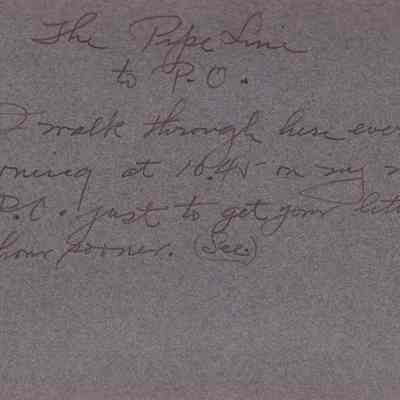 The Pype Line
to P.O.
I walk through here ever
orning at 10.45 on my
P.O. just to get your lett
hour sooner. (See.)